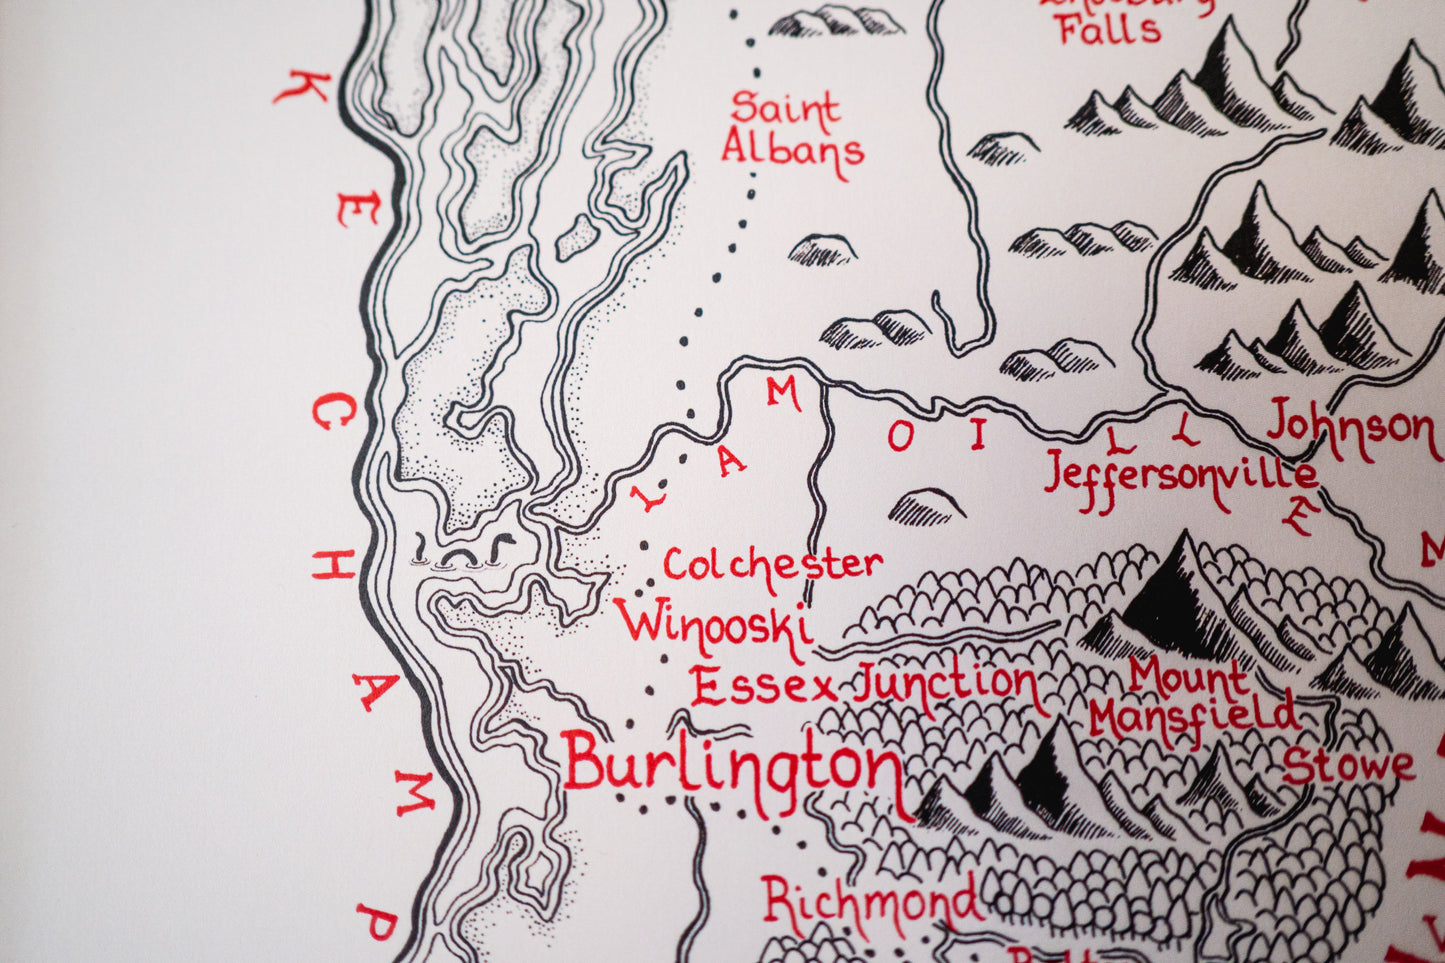 Falls
Saint
Albans
KECHAMP
LAMOILLE
Johnson
Jeffersonville
Colchester
Winooski
Essex Junction
Mount
Mansfield
Burlington
Stowe
Richmond